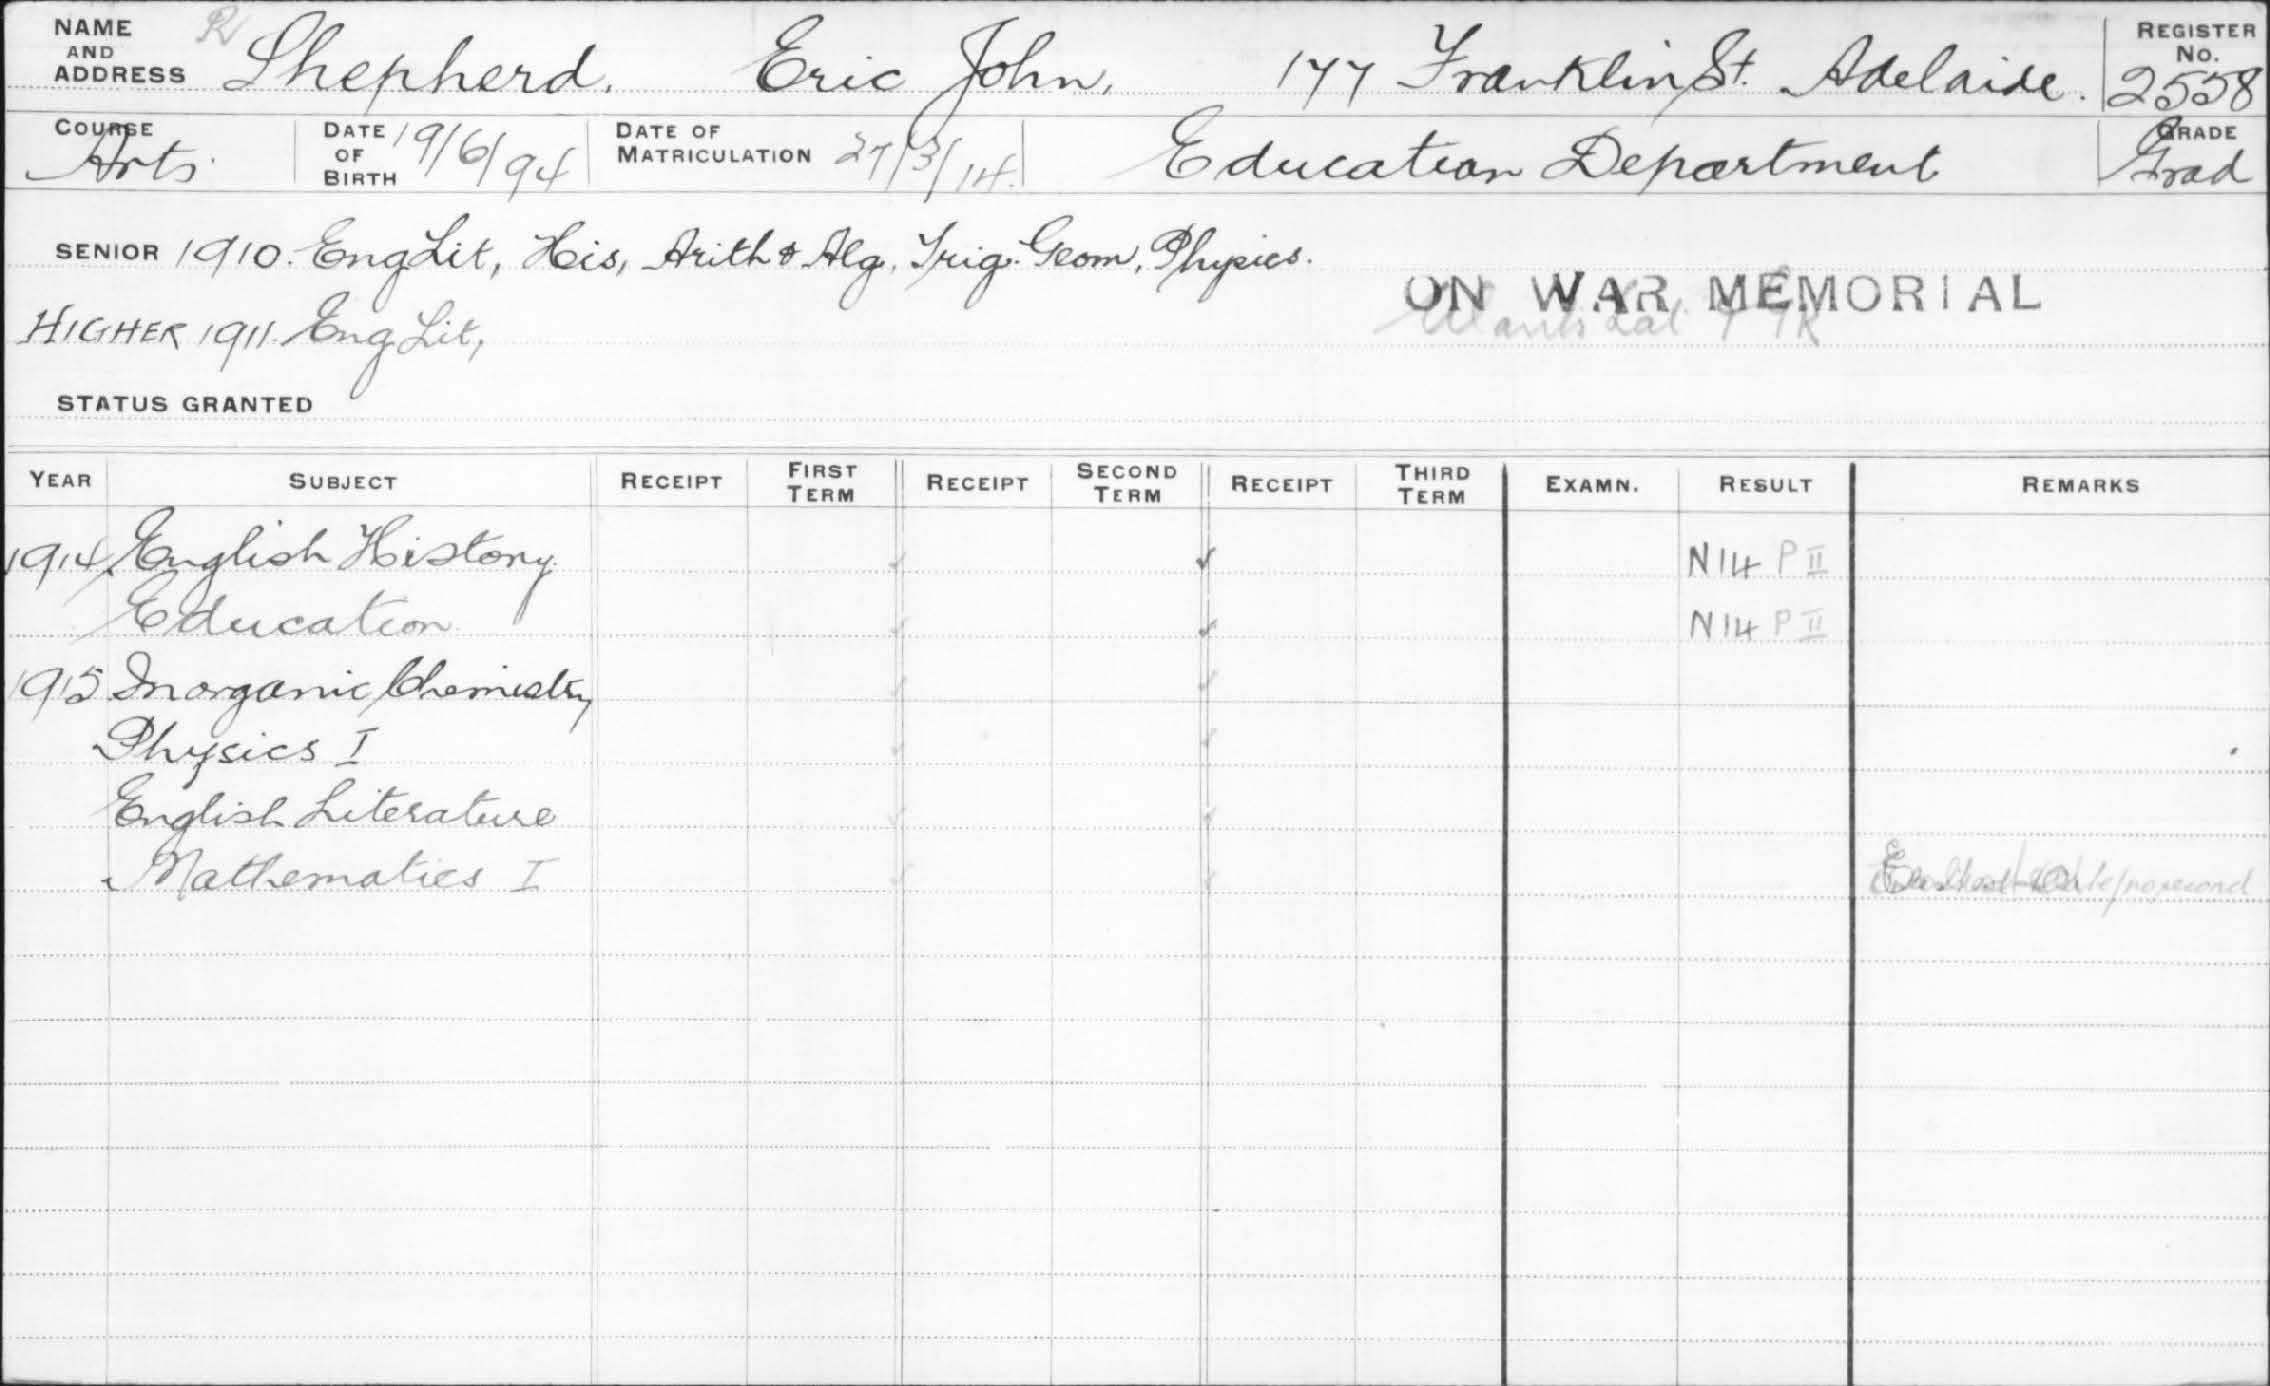 NAME AND ADDRESS Shepherd. Eric John. 177 Franklin St. Adelaide. REGISTER No. 2558
COURSE Arts. DATE OF BIRTH 19/6/94 DATE OF MATRICULATION 27/3/14. Education Department GRADE Grad
SENIOR 1910. Eng Lit, His, Arith & Alg, Trig. Geom, Physics.
ON WAR MEMORIAL
HIGHER 1911. Eng Lit, Wants Lat
STATUS GRANTED
YEAR SUBJECT RECEIPT FIRST TERM RECEIPT SECOND TERM RECEIPT THIRD TERM EXAMN. RESULT REMARKS
1914 English History ✓ ✓ N14 P II
Education ✓ ✓ N14 P II
1915 Inorganic Chemistry ✓ ✓
Physics I ✓ ✓
English Literature ✓ ✓
Mathematics I ✓ ✓